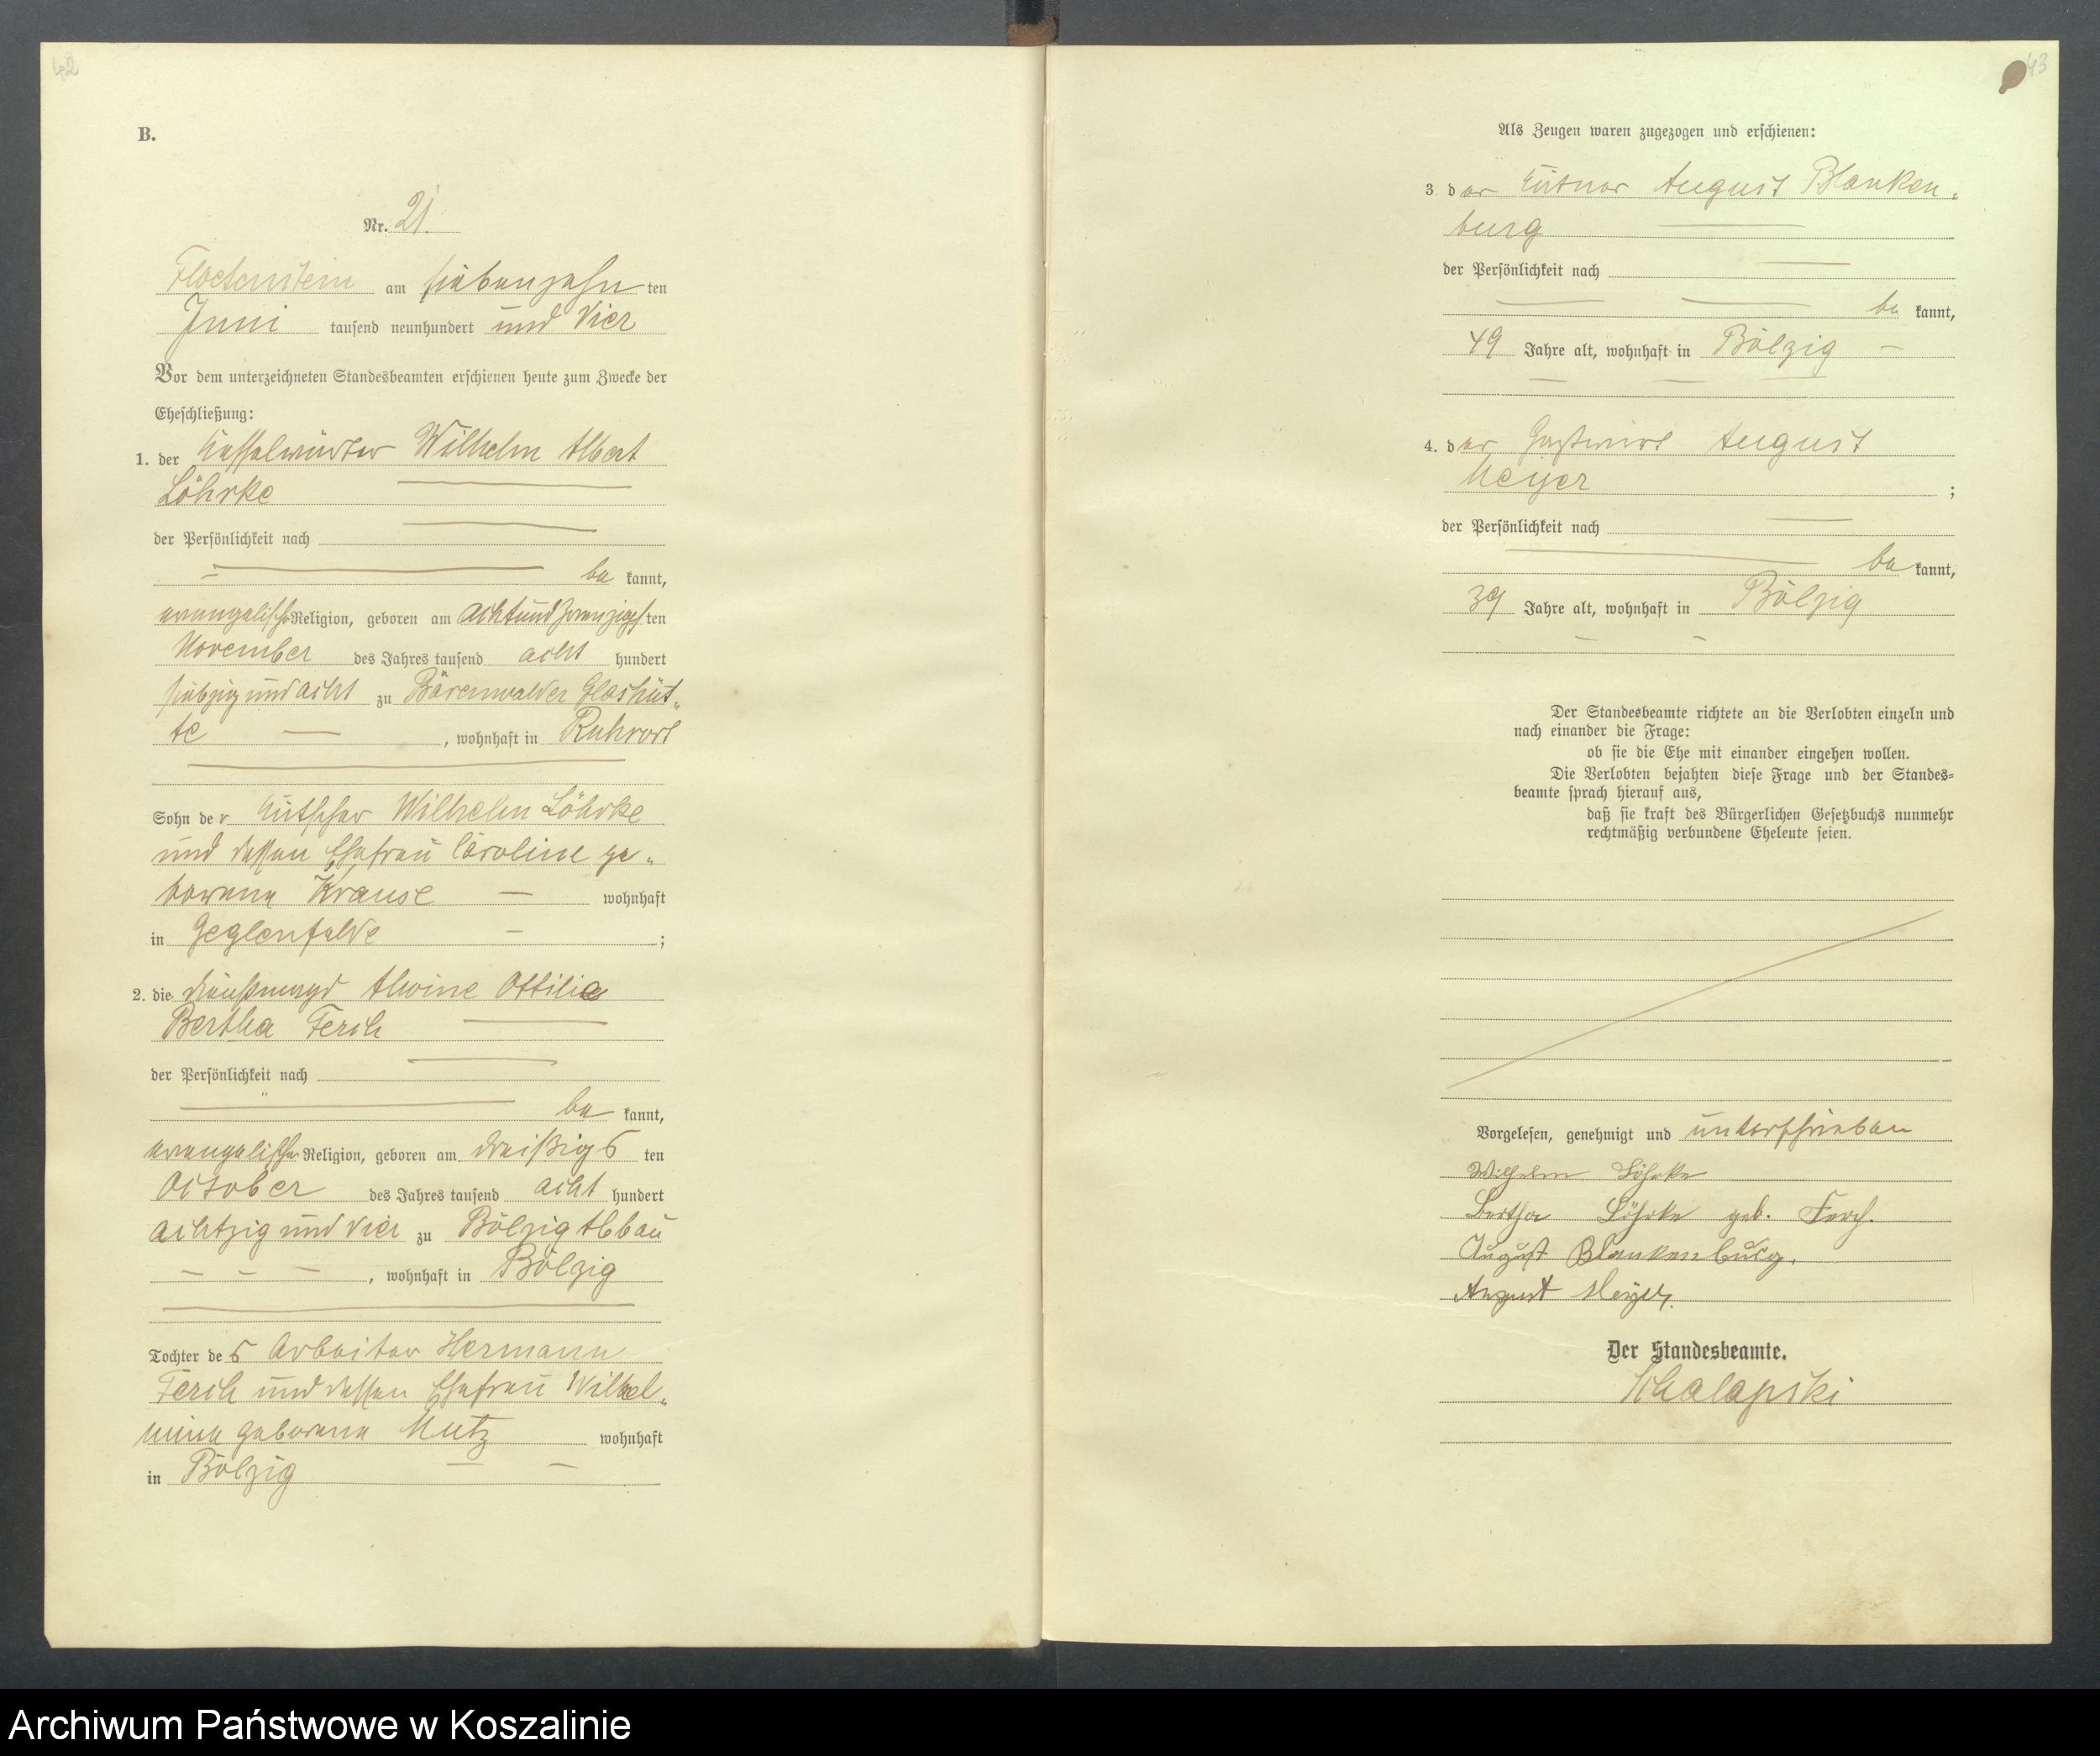 42
B.
Nr. 21.
Flötenstein am siebenzehn ten
Juni tausend neunhundert und Vier
Vor dem unterzeichneten Standesbeamten erschienen heute zum Zwecke der
Eheschließung:
1. der Kesselwärter Wilhelm Albert
Löhrke
der Persönlichkeit nach
be kannt,
evangelischer Religion, geboren am achtundzwanzigs ten
November des Jahres tausend acht hundert
siebzig und acht zu Bärenwalder Glashüt-
te , wohnhaft in Ruhrort
Sohn der Kutscher Wilhelm Löhrke
und dessen Ehefrau Caroline ge-
borene Krause wohnhaft
in Geglenfelde ;
2. die Dienstmagd Alwine Ottilie
Bertha Ferch
der Persönlichkeit nach
be kannt,
evangelischer Religion, geboren am dreißigs ten
October des Jahres tausend acht hundert
achtzig und vier zu Bölzig Abbau
, wohnhaft in Bölzig
Tochter des Arbeiter Hermann
Ferch und dessen Ehefrau Wilhel-
mine geborene Mutz wohnhaft
in Bölzig
43
Als Zeugen waren zugezogen und erschienen:
3. der August Blanken-
burg
der Persönlichkeit nach
be kannt,
49 Jahre alt, wohnhaft in Bölzig
4. der Gastwirt August
Meyer ;
der Persönlichkeit nach
be kannt,
39 Jahre alt, wohnhaft in Bölzig
Der Standesbeamte richtete an die Verlobten einzeln und
nach einander die Frage:
ob sie die Ehe mit einander eingehen wollen.
Die Verlobten bejahten diese Frage und der Standes-
beamte sprach hierauf aus,
daß sie kraft des Bürgerlichen Gesetzbuchs nunmehr
rechtmäßig verbundene Eheleute seien.
Vorgelesen, genehmigt und unterschrieben
Wilhelm Löhrke
Bertha Löhrke geb. Ferch.
August Blankenburg.
August Meyer.
Der Standesbeamte.
Schalapski
Archiwum Państwowe w Koszalinie